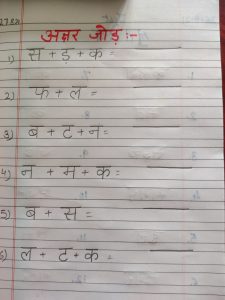 अक्षर जोड़ :-
1) स + ड़ + क =
2) फ + ल =
3) ब + ट + न =
4) न + म + क =
5) ब + स =
6) ल + ट + क =